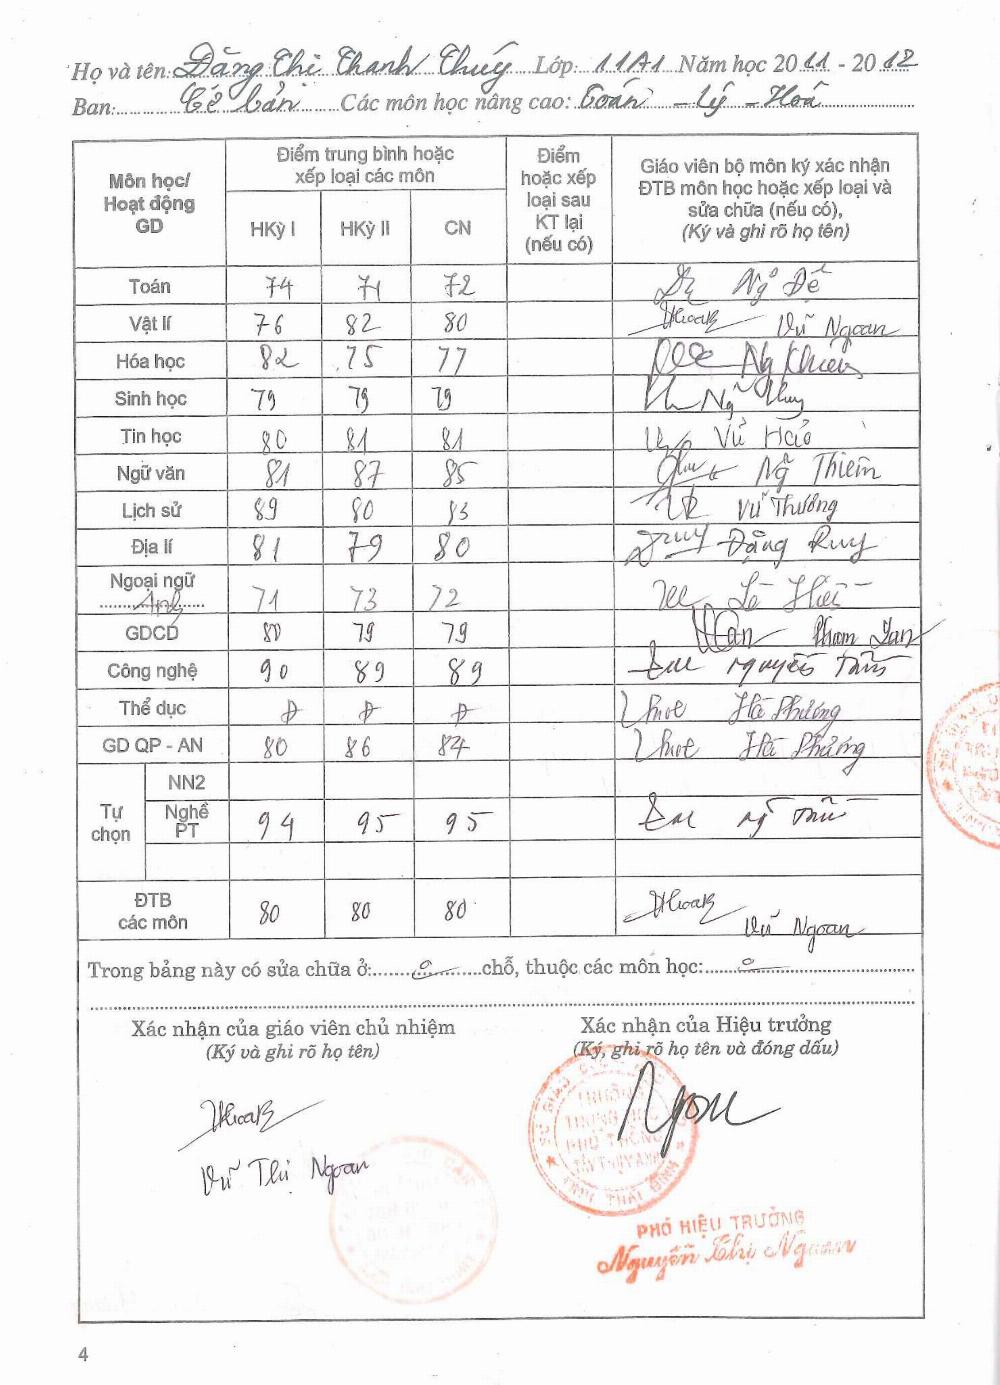 Họ và tên: Đặng Thị Thanh Thúy Lớp: 11A1 Năm học 2011 - 2012
Ban: Cơ bản Các môn học nâng cao: Toán - Lý - Hoá
Môn học/ Hoạt động GD
Điểm trung bình hoặc xếp loại các môn
HKỳ I HKỳ II CN
Điểm hoặc xếp loại sau KT lại (nếu có)
Giáo viên bộ môn ký xác nhận
ĐTB môn học hoặc xếp loại và
sửa chữa (nếu có),
(Ký và ghi rõ họ tên)
Toán 74 71 72 Ng Đệ
Vật lí 76 82 80 Vũ Ngoan
Hóa học 82 75 77 Ng
Sinh học 79 79 79 Ng Thuy
Tin học 80 81 81 Vũ Hảo
Ngữ văn 81 87 85 Ng Thiêm
Lịch sử 89 80 83 Vũ Thương
Địa lí 81 79 80 Đặng Ruy
Ngoại ngữ
Anh 71 73 72 Lê
GDCD 80 79 79 Phạm
Công nghệ 90 89 89 Nguyễn
Thể dục Đ Đ Đ Hà Phương
GD QP - AN 80 86 84 Hà Phương
Tự chọn
NN2
Nghề PT 94 95 95
ĐTB các môn 80 80 80 Vũ Ngoan
Trong bảng này có sửa chữa ở: 0 chỗ, thuộc các môn học: 0
Xác nhận của giáo viên chủ nhiệm
(Ký và ghi rõ họ tên)
Vũ Thị Ngoan
Xác nhận của Hiệu trưởng
(Ký, ghi rõ họ tên và đóng dấu)
TRƯỜNG
TRUNG HỌC
PHỔ THÔNG
TỈNH THÁI BÌNH
PHÓ HIỆU TRƯỞNG
Nguyễn Thị Ngoan
4